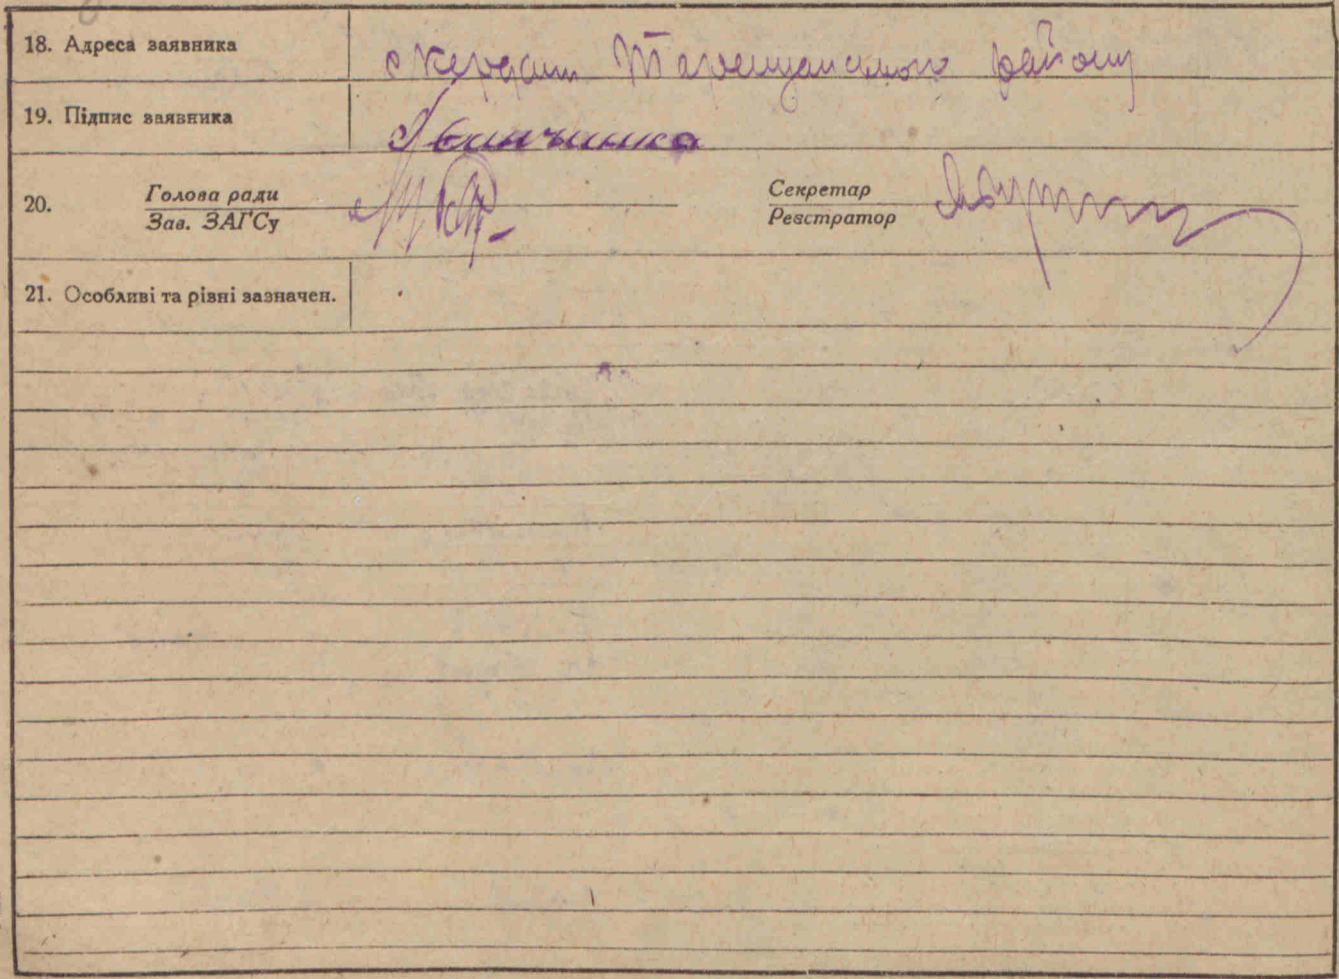 18. Адреса заявника с Кердани Таращанського району
19. Підпис заявника
20. Голова ради Секретар
Зав. ЗАГСу Реєстратор
21. Особливі та різні зазначен.